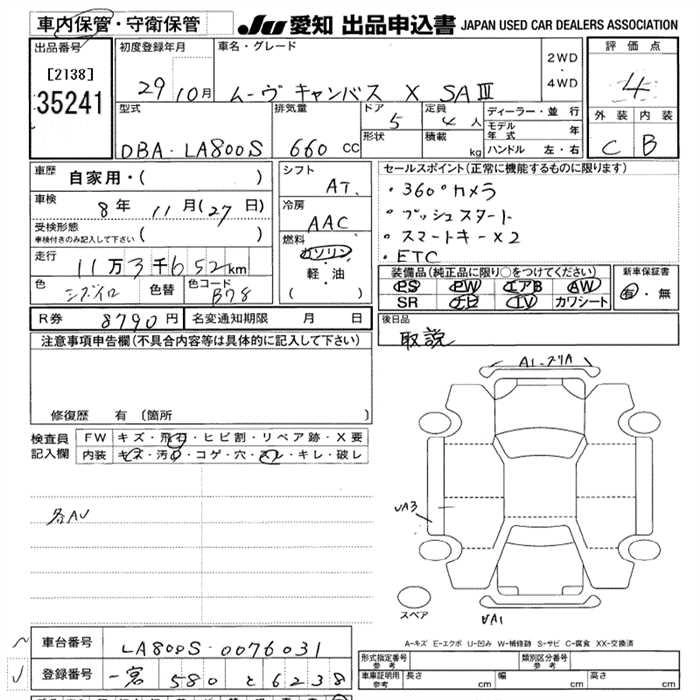 車内保管・守衛保管
JU 愛知 出品申込書 JAPAN USED CAR DEALERS ASSOCIATION
出品番号
[2138]
35241
初度登録年月
29 10月
車名・グレード
ムーヴ キャンバス X SAⅢ
2WD
・
4WD
評価点
4
外装 内装
C B
型式
DBA-LA800S
排気量
660 cc
ドア 5
形状
定員 4人
積載 kg
ディーラー・並行
モデル年式 年
ハンドル 左・右
車歴 自家用・( )
車検 8年 11月(27日)
受検形態
車検付きのみ記入して下さい ( )
走行 11万3千652km
色
色替
色コード B78
シフト AT
冷房 AAC
燃料
ガソリン
軽・油
( )
セールスポイント(正常に機能するものに限ります)
・360°カメラ
・プッシュスタート
・スマートキー×2
・ETC
装備品(純正品に限り○をつけてください)
PS PW エアB AW
SR ナビ TV カワシート
新車保証書
有・無
R券 8790円
名変通知期限 月 日
後日品
取説
注意事項申告欄(不具合内容等は具体的に記入して下さい)
修復歴 有 〔箇所 〕
検査員記入欄
FW キズ・飛石・ヒビ割・リペア跡・X要
内装 キズ・汚れ・コゲ・穴・スレ・キレ・破レ
各AU
A1
UA3
スペア
UA1
A-キズ E-エクボ U-凹み W-補修跡 S-サビ C-腐食 XX-交換済
車台番号 LA800S-0076031
登録番号 一宮 580 と 6238
形式指定番号
参考
類別区分番号
参考
車庫証明用
参考
長さ cm
幅 cm
高さ cm